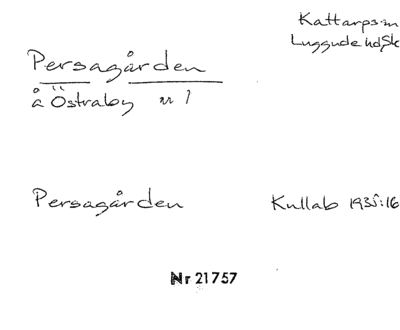 Kattarps sn
Luggude hd, Sk
Persagården
å Östraby nr 1
Persagården
Kullab 1935:16
Nr 21757